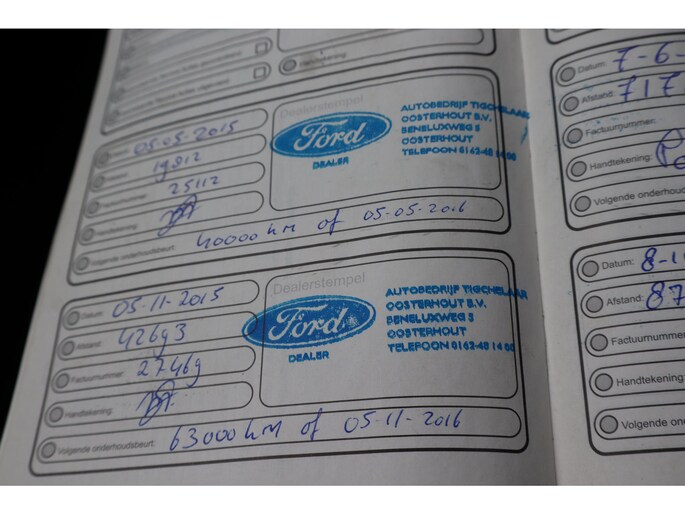 Handtekening
Dealerstempel
05-05-2015
19912
25112
Volgende onderhoudsbeurt: 40000 km of 05-05-2016
Ford
DEALER
AUTOBEDRIJF TIGCHELAAR
OOSTERHOUT B.V.
BENELUXWEG 5
OOSTERHOUT
TELEFOON 0162-48 14 00
Dealerstempel
Datum: 05-11-2015
Afstand: 42693
Factuurnummer: 27469
Handtekening:
Volgende onderhoudsbeurt: 63000 km of 05-11-2016
Ford
DEALER
AUTOBEDRIJF TIGCHELAAR
OOSTERHOUT B.V.
BENELUXWEG 5
OOSTERHOUT
TELEFOON 0162-48 14 00
Datum: 7-6-
Afstand: 717
Factuurnummer:
Handtekening:
Volgende onderhoud
Datum: 8-1
Afstand: 87
Factuurnumme
Handtekening
Volgende onder